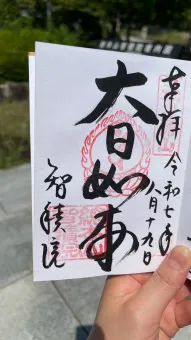 奉拝
令和七年八月十九日
大日如来
智積院